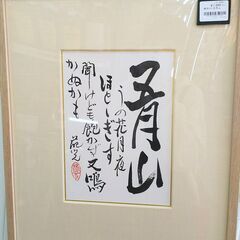 五月山
うの花月夜
ほとゝぎす
聞けども飽かず
又鳴
かぬかも